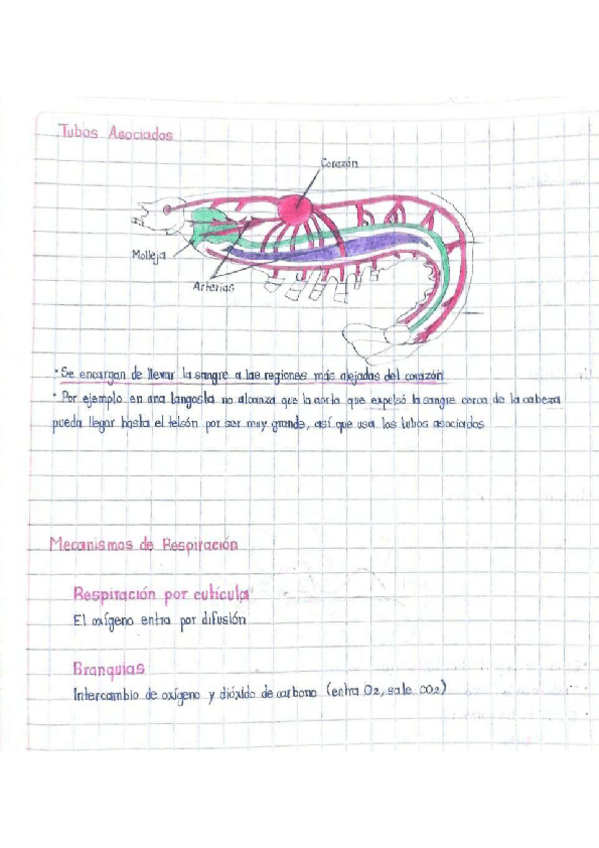 Tubos Asociados
Corazón
Molleja
Arterias
• Se encargan de llevar la sangre a las regiones más alejadas del corazón
• Por ejemplo en una langosta no alcanza que la aorta que expulsó la sangre cerca de la cabeza
pueda llegar hasta el telsón por ser muy grande, así que usa los tubos asociados
Mecanismos de Respiración
Respiración por cutícula
El oxígeno entra por difusión
Branquias
Intercambio de oxígeno y dióxido de carbono (entra O2, sale CO2)